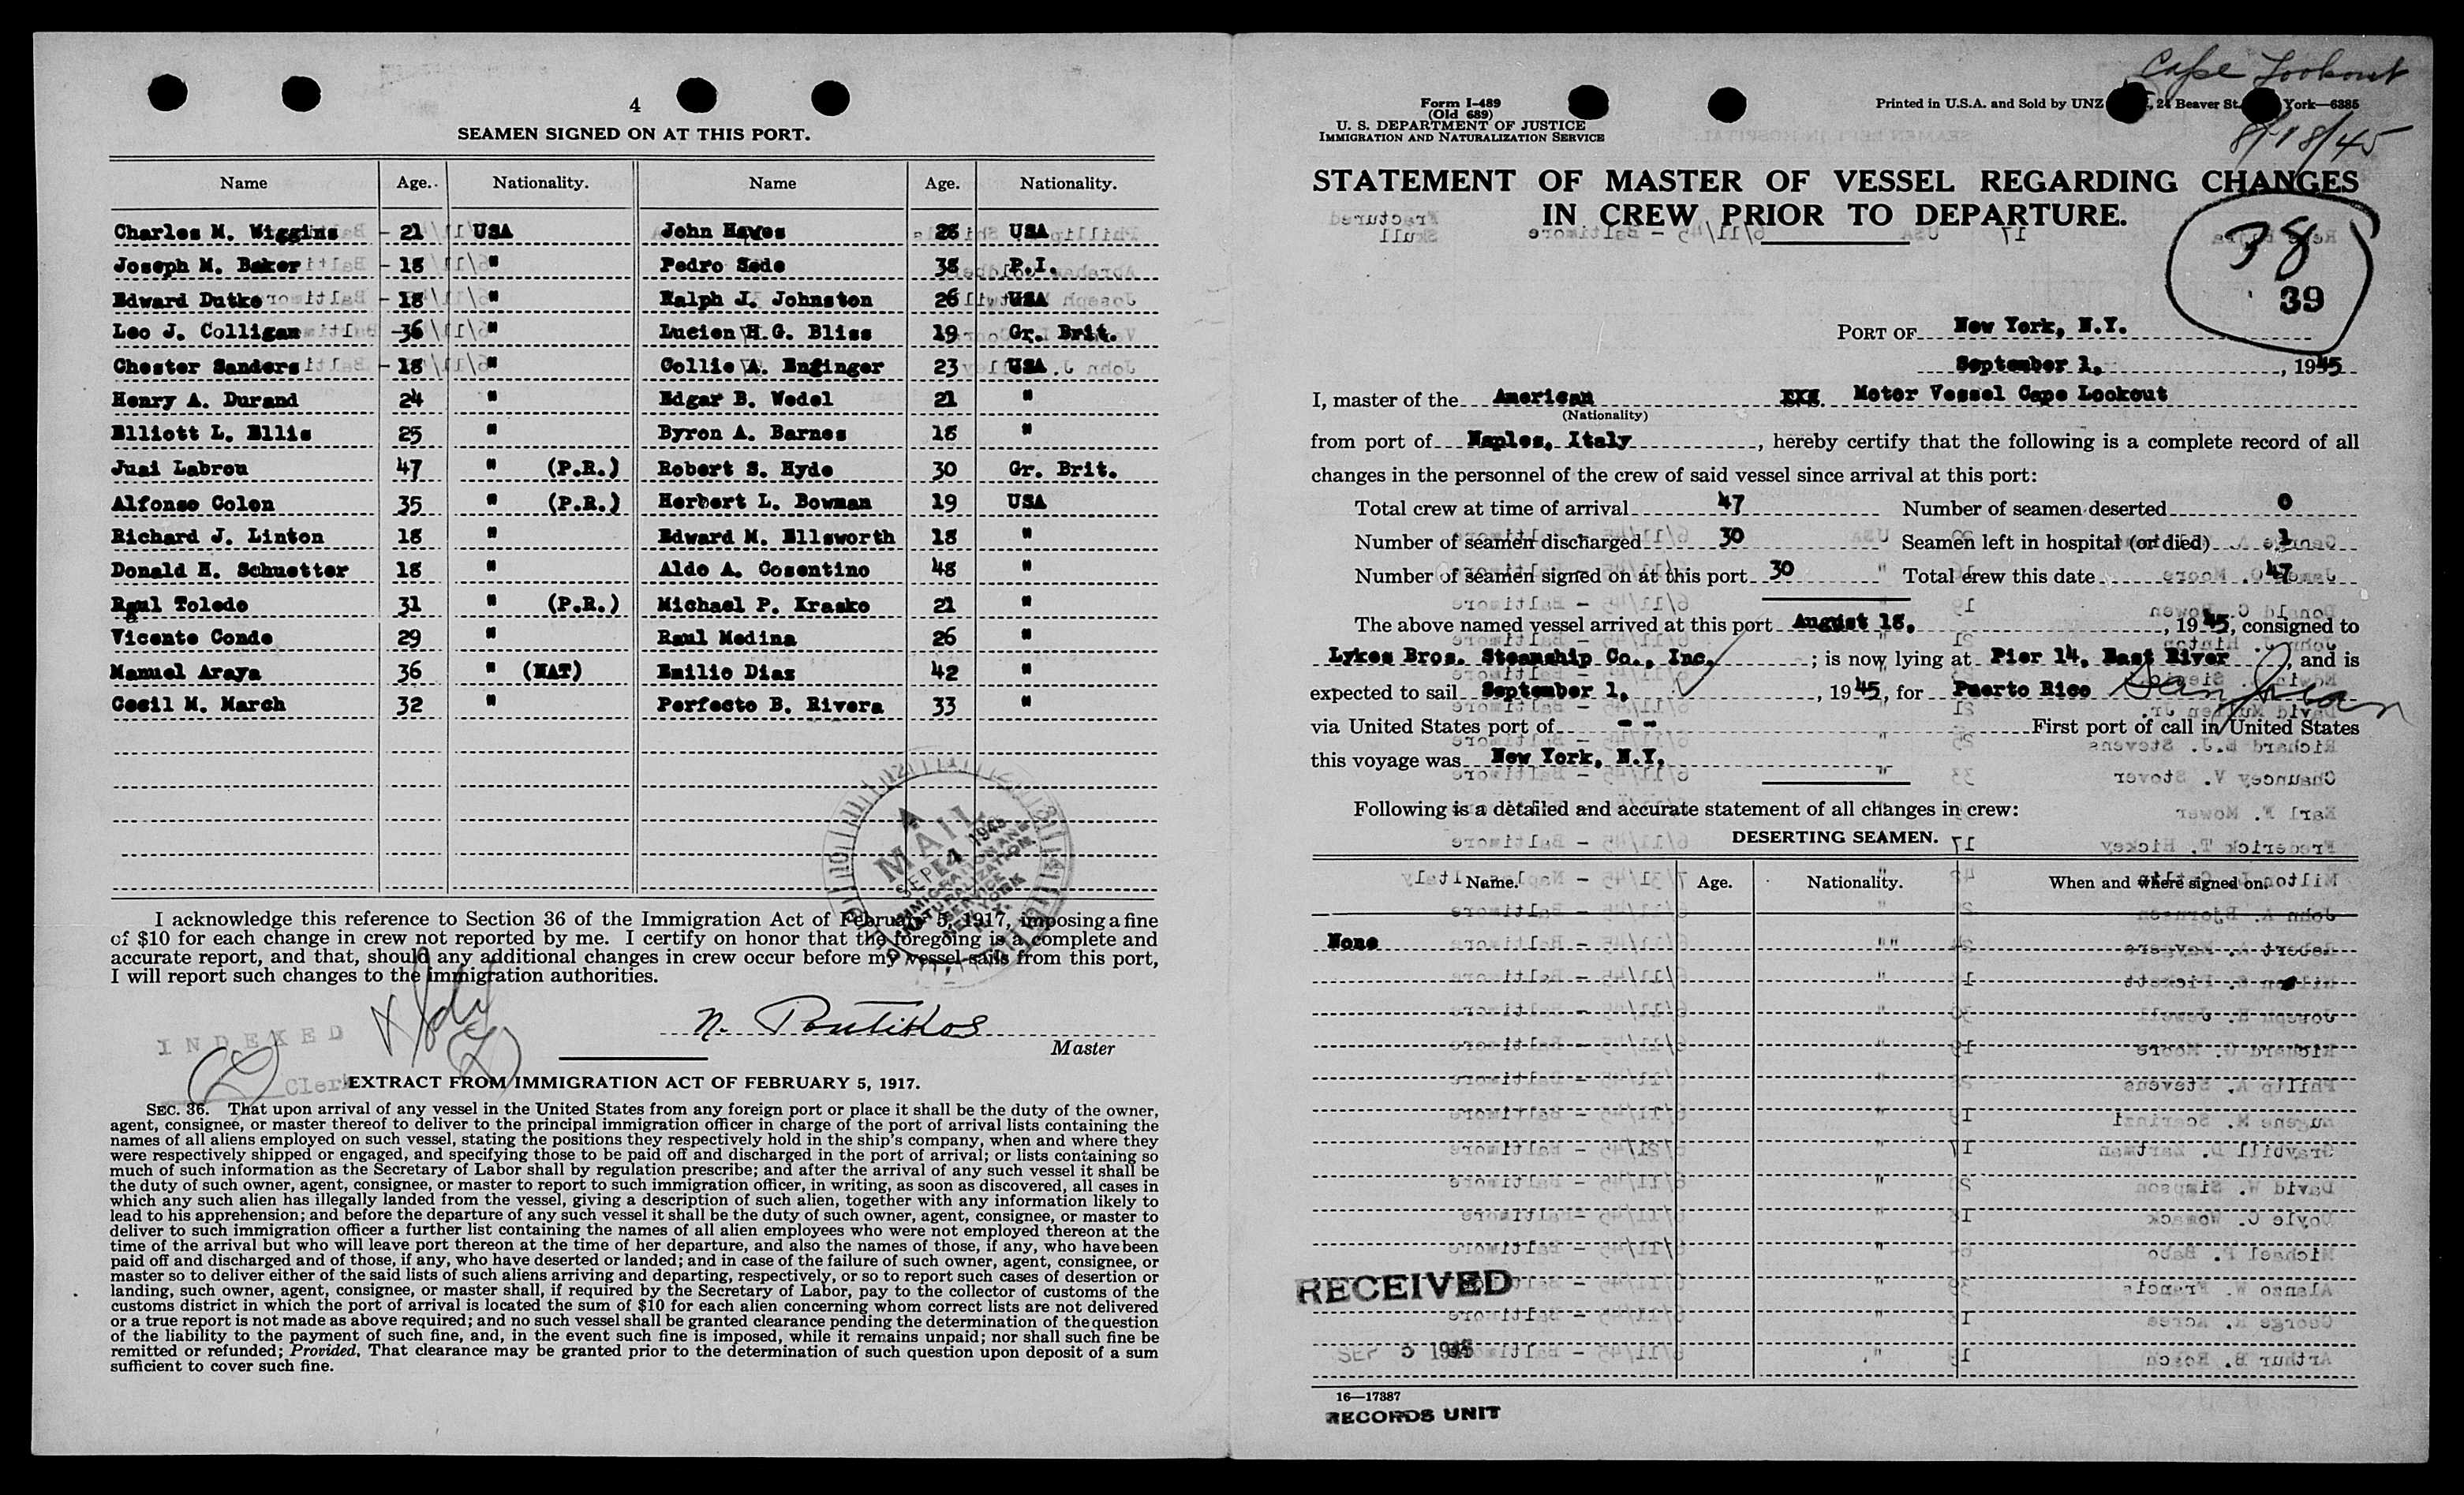 4
SEAMEN SIGNED ON AT THIS PORT.
Name Age. Nationality. Name Age. Nationality.
Charles M. Wiggins - 21 USA John Hayes 28 USA
Joseph M. Baker - 18 " Pedro Sede 38 P.I.
Edward Dutke - 18 " Ralph J. Johnston 26 USA
Leo J. Colligan -36 " Lucien H.G. Bliss 19 Gr. Brit.
Chester Sanders - 18 " Collie A. Enfinger 23 USA
Henry A. Durand 24 " Edgar B. Wedel 21 "
Elliott L. Ellis 25 " Byron A. Barnes 18 "
Juai Labrou 47 " (P.R.) Robert S. Hyde 30 Gr. Brit.
Alfonso Colon 35 " (P.R.) Herbert L. Bowman 19 USA
Richard J. Linton 18 " Edward M. Ellsworth 18 "
Donald H. Schuetter 18 " Aldo A. Cosentino 48 "
Raul Toledo 31 " (P.R.) Michael P. Krasko 21 "
Vicente Conde 29 " Raul Medina 26 "
Manuel Araya 36 " (NAT) Emilio Diaz 42 "
Cecil M. March 32 " Perfecto B. Rivera 33 "
MAIL
SEP 4 1945
IMMIGRATION AND
NATURALIZATION
SERVICE
NEW YORK
I acknowledge this reference to Section 36 of the Immigration Act of February 5, 1917, imposing a fine
of $10 for each change in crew not reported by me. I certify on honor that the foregoing is a complete and
accurate report, and that, should any additional changes in crew occur before my vessel sails from this port,
I will report such changes to the immigration authorities.
N. Pontikos
Master
INDEXED
Clerk
EXTRACT FROM IMMIGRATION ACT OF FEBRUARY 5, 1917.
SEC. 36. That upon arrival of any vessel in the United States from any foreign port or place it shall be the duty of the owner,
agent, consignee, or master thereof to deliver to the principal immigration officer in charge of the port of arrival lists containing the
names of all aliens employed on such vessel, stating the positions they respectively hold in the ship's company, when and where they
were respectively shipped or engaged, and specifying those to be paid off and discharged in the port of arrival; or lists containing so
much of such information as the Secretary of Labor shall by regulation prescribe; and after the arrival of any such vessel it shall be
the duty of such owner, agent, consignee, or master to report to such immigration officer, in writing, as soon as discovered, all cases in
which any such alien has illegally landed from the vessel, giving a description of such alien, together with any information likely to
lead to his apprehension; and before the departure of any such vessel it shall be the duty of such owner, agent, consignee, or master to
deliver to such immigration officer a further list containing the names of all alien employees who were not employed thereon at the
time of the arrival but who will leave port thereon at the time of her departure, and also the names of those, if any, who have been
paid off and discharged and of those, if any, who have deserted or landed; and in case of the failure of such owner, agent, consignee, or
master so to deliver either of the said lists of such aliens arriving and departing, respectively, or so to report such cases of desertion or
landing, such owner, agent, consignee, or master shall, if required by the Secretary of Labor, pay to the collector of customs of the
customs district in which the port of arrival is located the sum of $10 for each alien concerning whom correct lists are not delivered
or a true report is not made as above required; and no such vessel shall be granted clearance pending the determination of the question
of the liability to the payment of such fine, and, in the event such fine is imposed, while it remains unpaid; nor shall such fine be
remitted or refunded; Provided, That clearance may be granted prior to the determination of such question upon deposit of a sum
sufficient to cover such fine.
Cape Lookout
8/18/45
Form I-489
(Old 689)
U. S. DEPARTMENT OF JUSTICE
IMMIGRATION AND NATURALIZATION SERVICE
Printed in U.S.A. and Sold by UNZ , 24 Beaver St. York—6385
STATEMENT OF MASTER OF VESSEL REGARDING CHANGES
IN CREW PRIOR TO DEPARTURE.
38
39
PORT OF New York, N.Y.
September 1, , 1945
I, master of the American XXX Motor Vessel Cape Lookout
(Nationality)
from port of Naples, Italy , hereby certify that the following is a complete record of all
changes in the personnel of the crew of said vessel since arrival at this port:
Total crew at time of arrival 47 Number of seamen deserted 0
Number of seamen discharged 30 Seamen left in hospital (or died) 1
Number of seamen signed on at this port 30 Total crew this date 47
The above named vessel arrived at this port August 18, , 1945, consigned to
Lykes Bros. Steamship Co., Inc. ; is now lying at Pier 14, East River , and is
expected to sail September 1, , 1945, for Puerto Rico San Juan
via United States port of -- First port of call in United States
this voyage was New York, N.Y.
Following is a detailed and accurate statement of all changes in crew:
DESERTING SEAMEN.
Name. Age. Nationality. When and where signed on.
None
RECEIVED
SEP 5 1945
16—17387
RECORDS UNIT